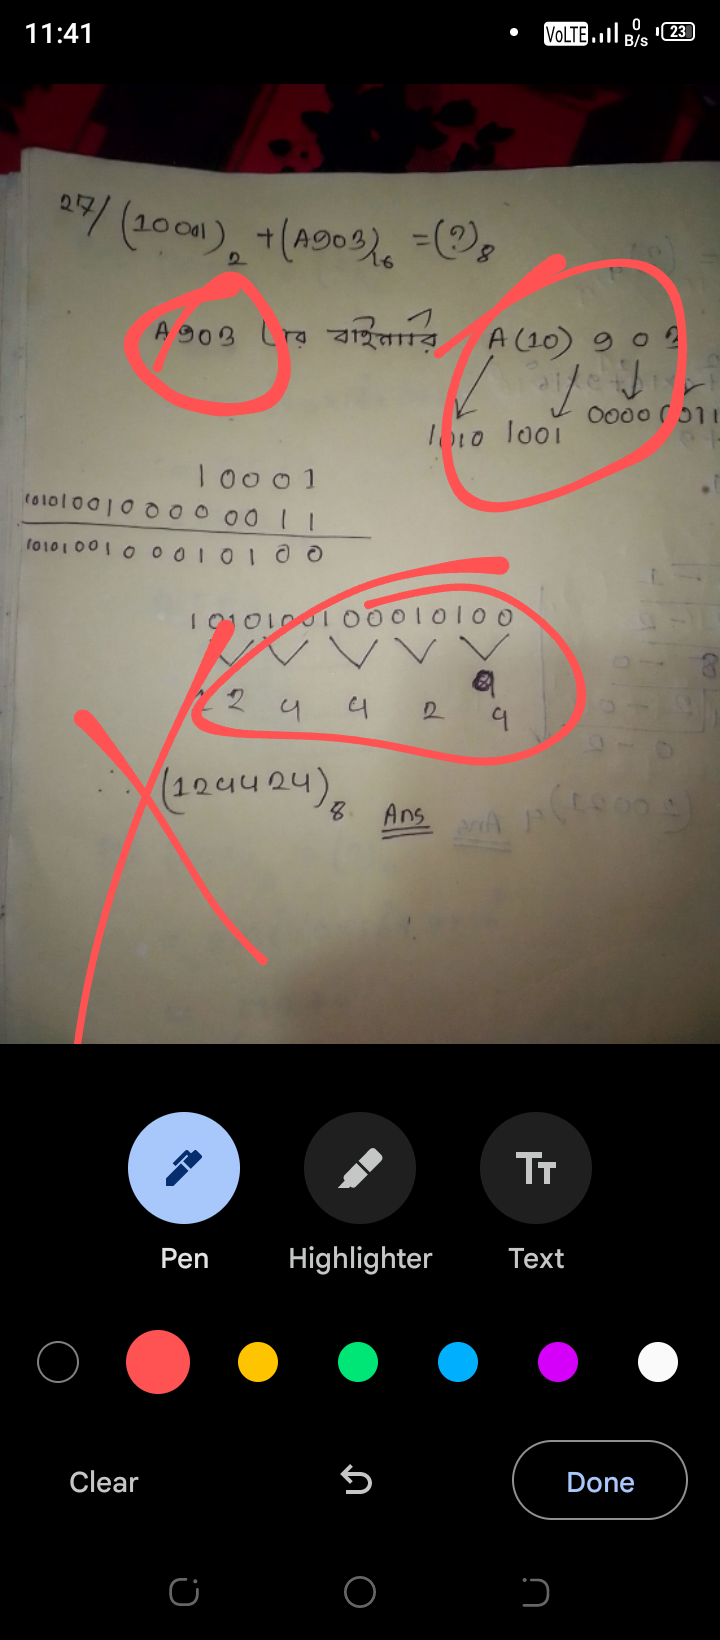 11:41 VoLTE 0 B/s 23
27/ (10001)₂ + (A903)₁₆ = (?)₈
A903 এর বাইনারি A(10) 9 0 3
1010 1001 0000 0011
1 0 0 0 1
1010100100000011
1010100100010100
1010100100010100
1 2 4 4 2 4
∴ (124424)₈ Ans
Pen Highlighter Text
Clear Done